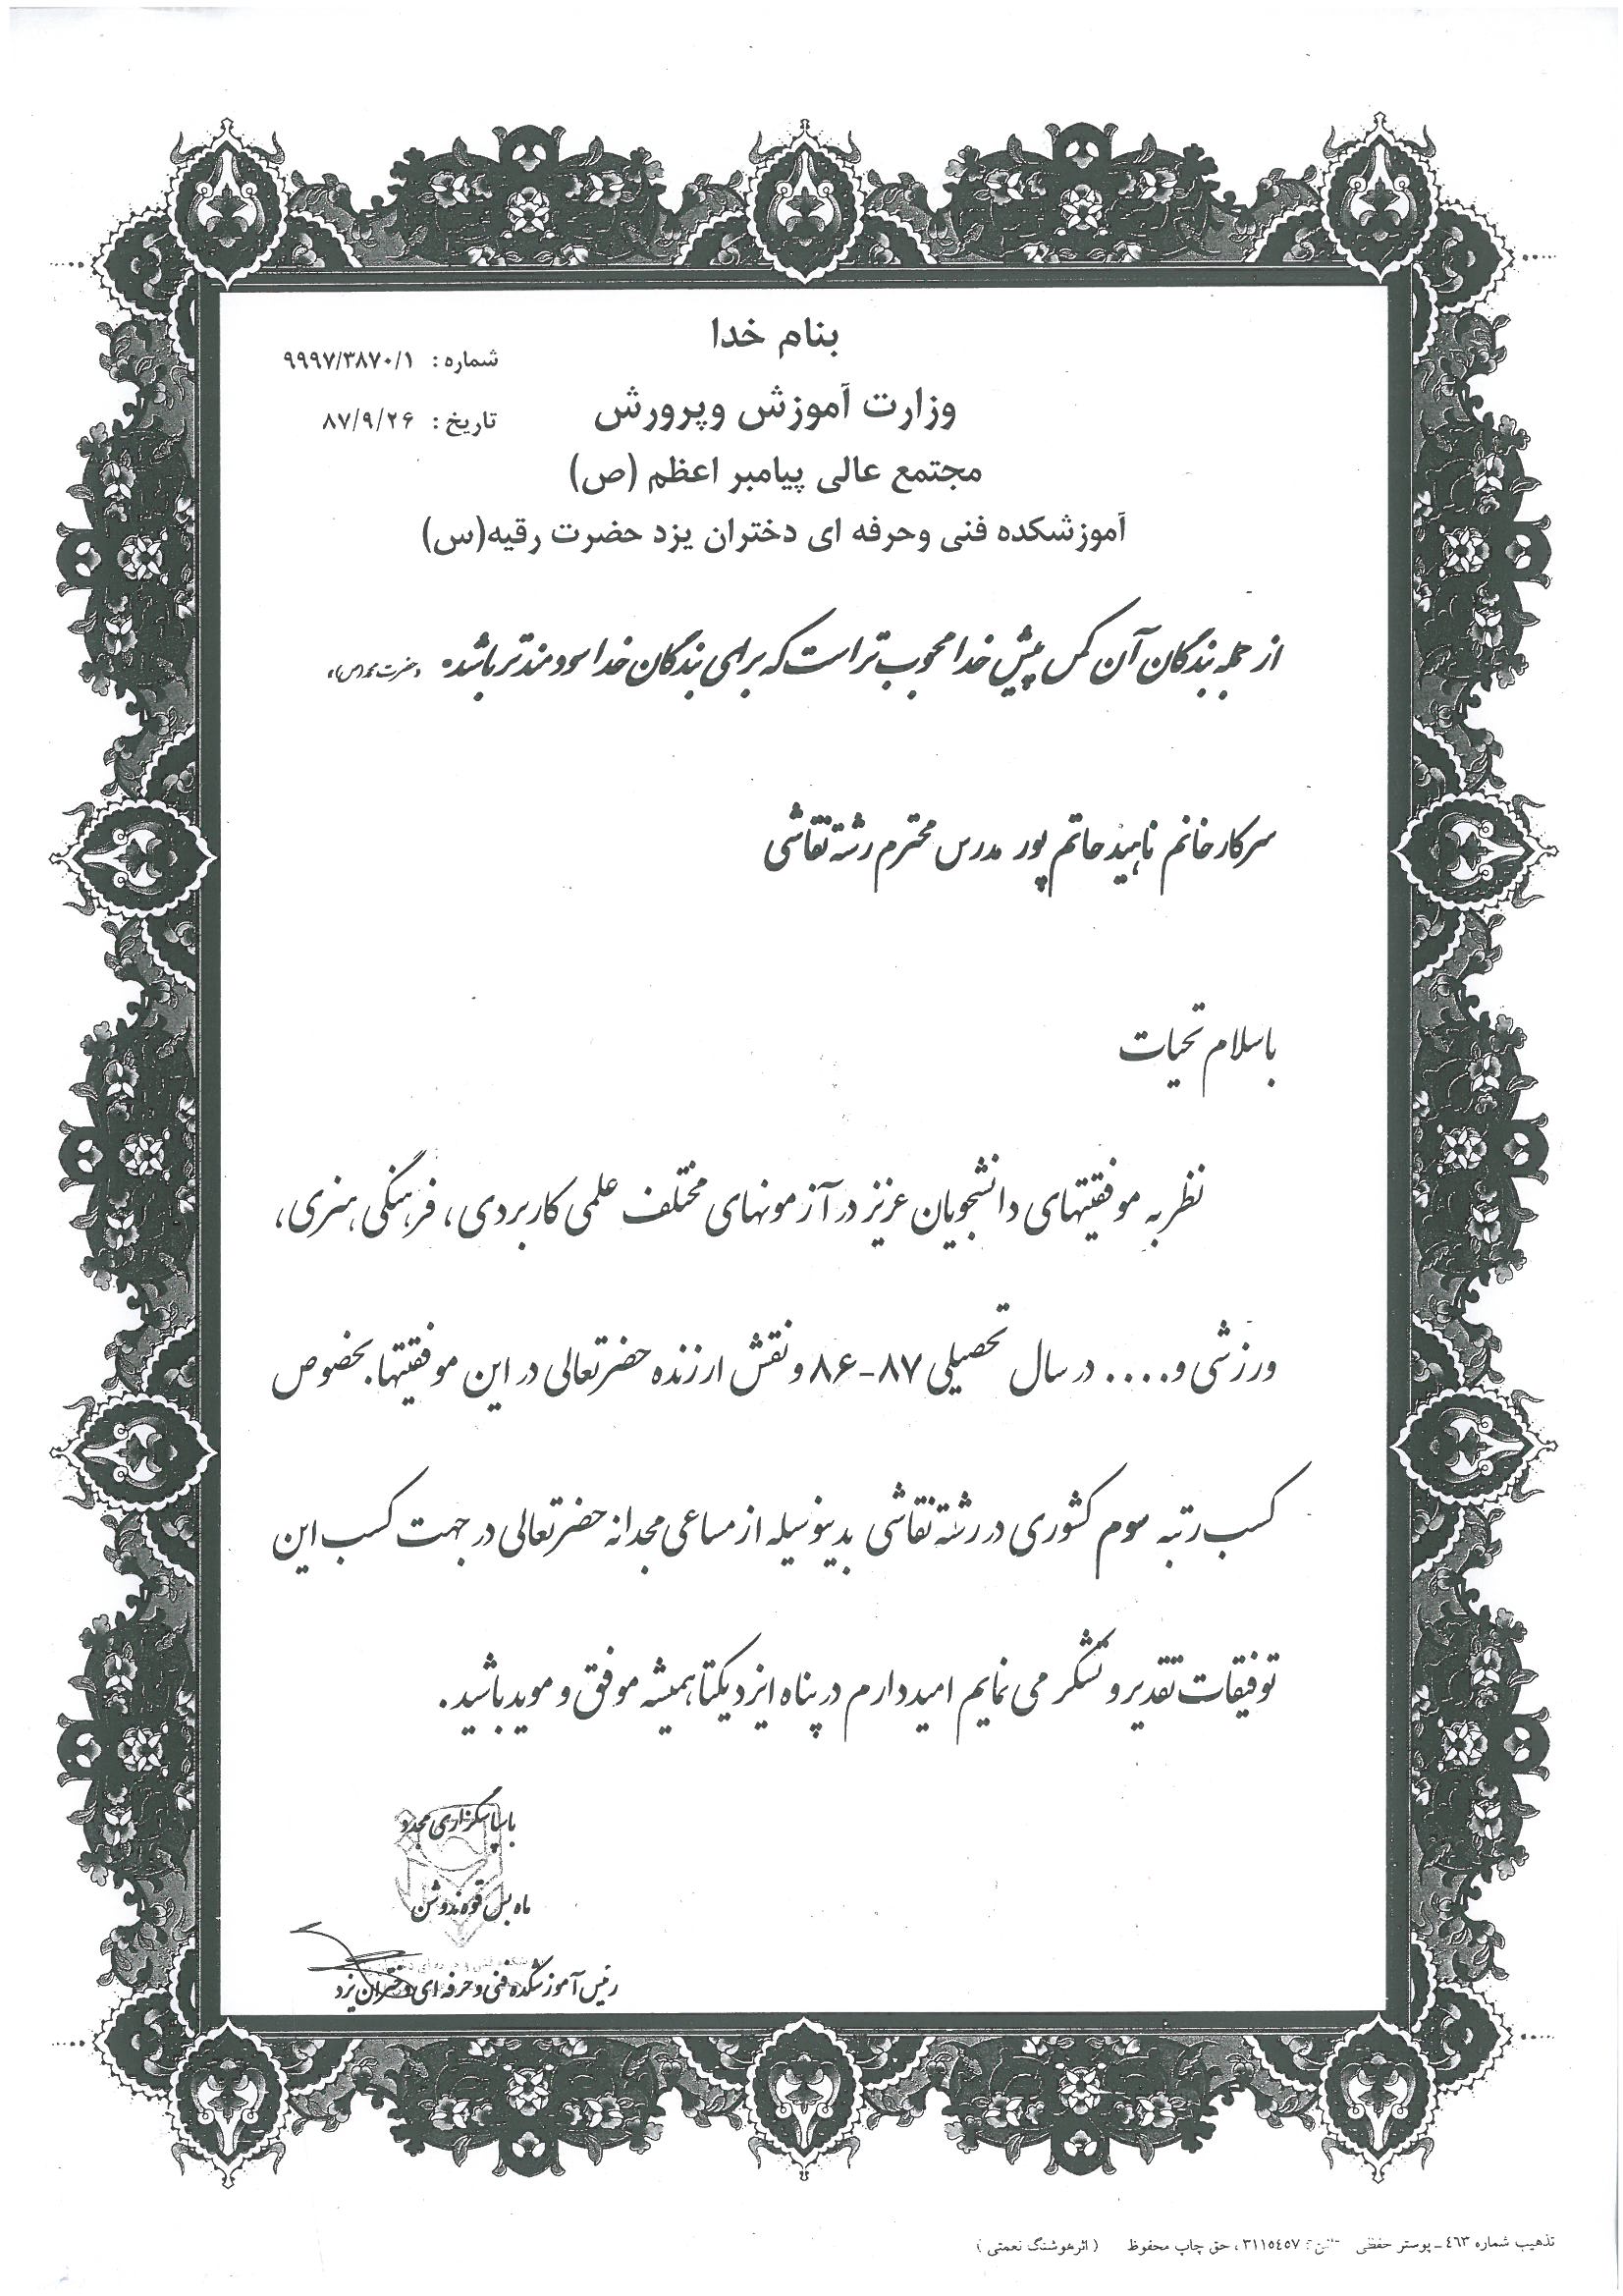 بنام خدا
شماره : ۹۹۹۷/۳۸۷۰/۱
وزارت آموزش وپرورش
تاریخ : ۸۷/۹/۲۶
مجتمع عالی پیامبر اعظم (ص)
آموزشکده فنی وحرفه ای دختران یزد حضرت رقیه(س)
از جمله بندگان آن کس پیش خدا محبوب تر است که برای بندگان خدا سودمندتر باشد. «حضرت محمد(ص)»
سرکار خانم ناهید حاتم پور مدرس محترم رشته نقاشی
باسلام تحیات
نظر به موفقیتهای دانشجویان عزیز در آزمونهای مختلف علمی کاربردی، فرهنگی هنری،
ورزشی و.... در سال تحصیلی ۸۷-۸۶ و نقش ارزنده حضرتعالی در این موفقیتها، بخصوص
کسب رتبه سوم کشوری در رشته نقاشی بدینوسیله از مساعی مجدانه حضرتعالی در جهت کسب این
توفیقات تقدیر و تشکر می نمایم امیددارم در پناه ایزد یکتا همیشه موفق و موید باشید.
با سپاسگزاری مجدد
ماه بس قوه ندوشن
رئیس آموزشکده فنی و حرفه ای دختران یزد
تذهیب شماره ٤٦٣ ـ پوستر حفظی تلفن: ٣١١٥٤٥٧ ، حق چاپ محفوظ ( اثرهوشنگ نعمتی )